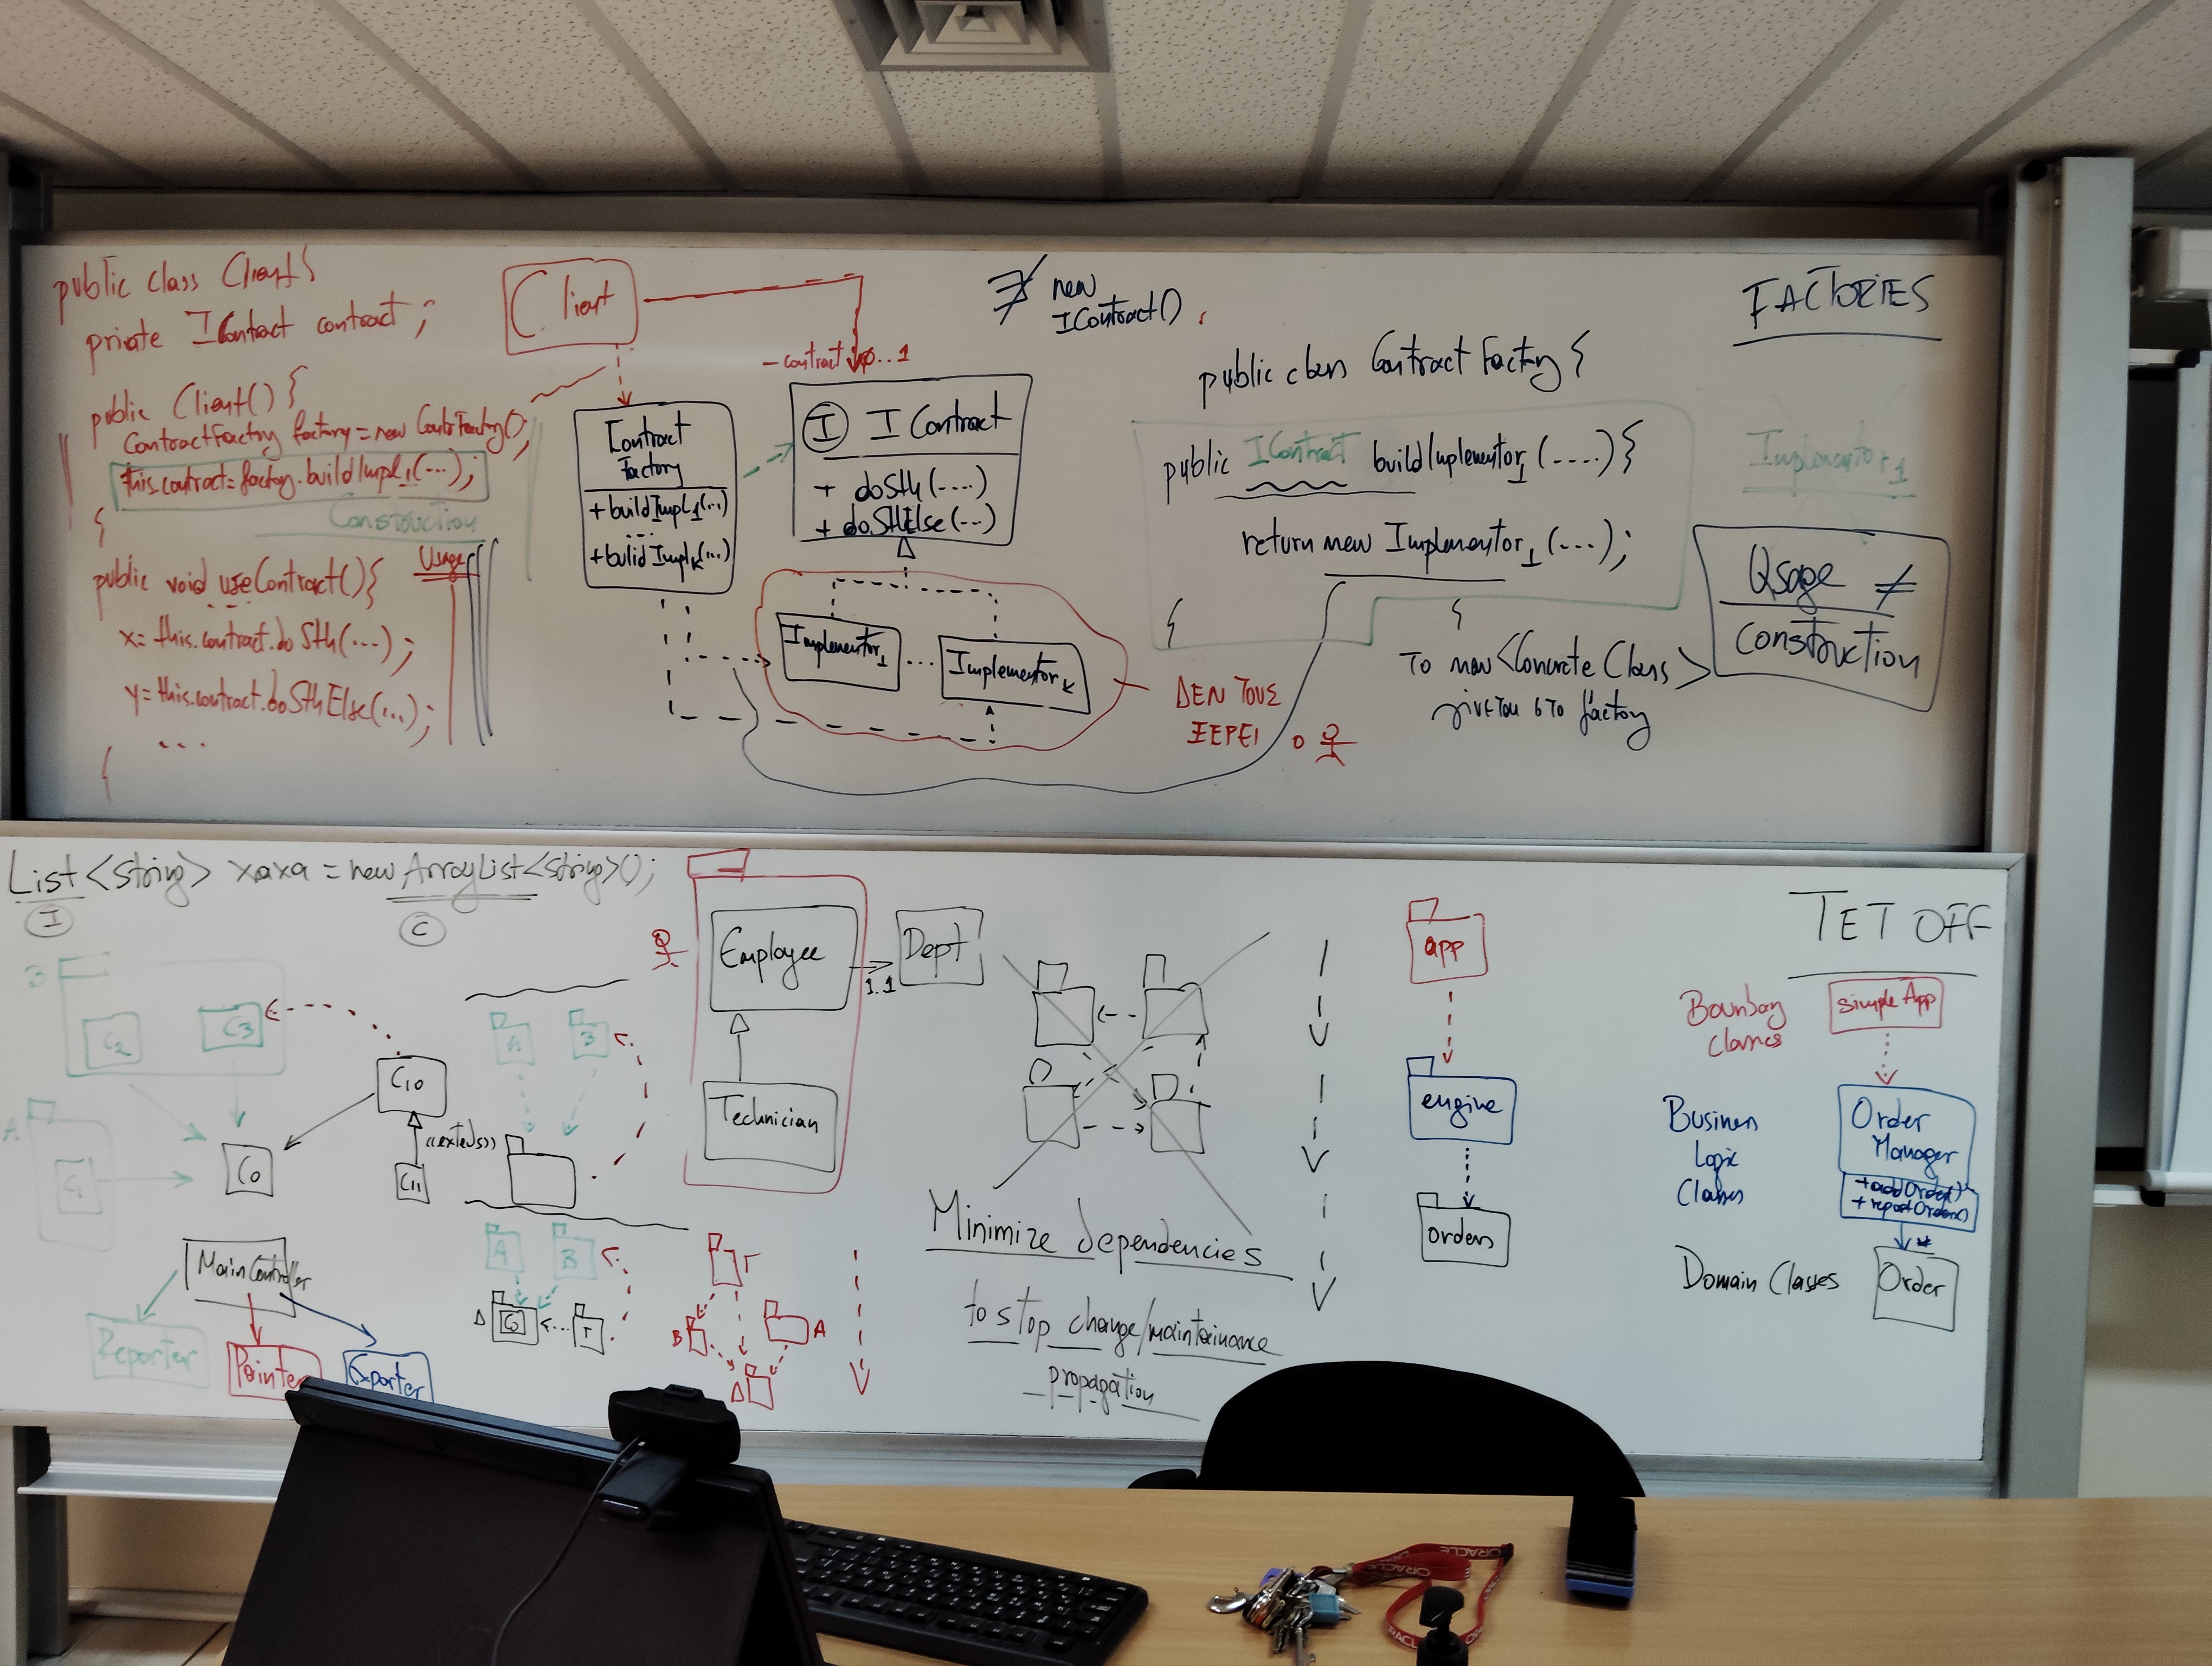 public class Client {
private IContract contract ;
public Client() {
ContractFactory factory = new ContrFactory();
this.contract = factory.buildImpl1(...);
Construction
}
Usage
public void useContract() {
x = this.contract.doSth(...);
y = this.contract.doSthElse(...);
...
}
Client
- contract 0..1
Contract
Factory
+ buildImpl1(...)
...
+ buildImplk(...)
I IContract
+ doSth(....)
+ doSthElse(...)
Implementor1 ... Implementork
ΔΕΝ ΤΟΥΣ
ΞΕΡΕΙ ο
∄ new
IContract()
FACTORIES
public class ContractFactory {
public IContract buildImplementor1 (....) {
return new Implementor1 (...);
}
}
Implementor1
Usage ≠
construction
Το new <Concrete Class>
γίνεται στο factory
List<String> xaxa = new ArrayList<String>();
I
C
B
C2
C3
A
C1
C0
C10
<<extends>>
C11
A
B
Main Controller
Reporter
Printer
Exporter
A
B
Δ
C0
Γ
Γ
B
A
Δ
Employee
1..1
Dept
Technician
Minimize dependencies
to stop change/maintainance
propagation
app
engine
orders
TET OFF
Boundary
Classes
simple App
Business
Logic
Classes
Order
Manager
+ addOrder()
+ reportOrders()
*
Domain Classes
Order
ORACLE
ORACLE